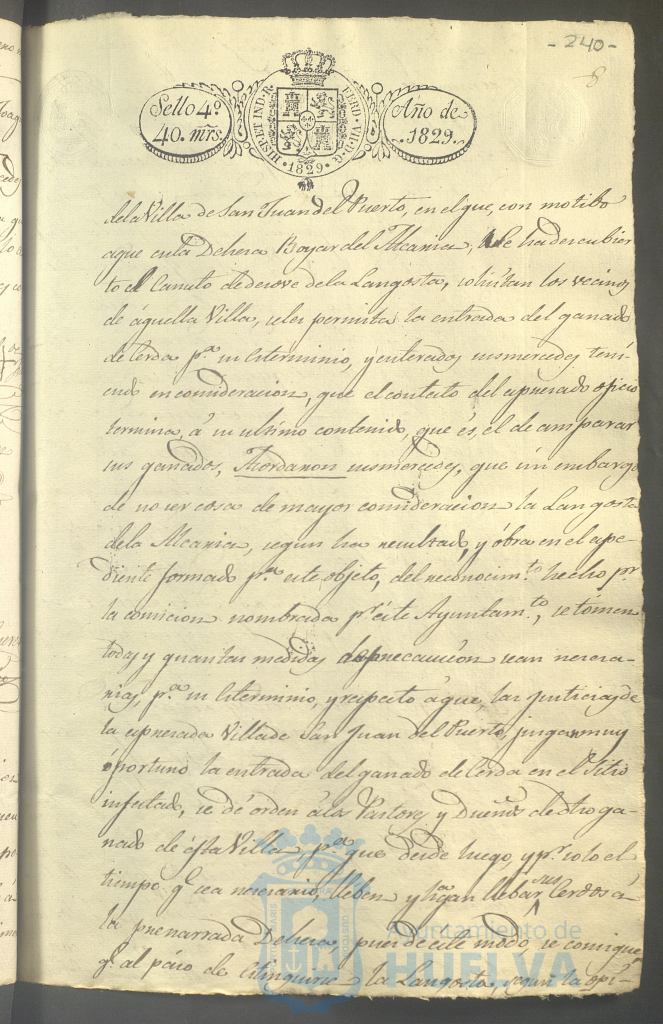 -240-
8
Sello 4º
40. mrs.
HISP. ET IND. R.
FERD. VII. D. G.
·1829·
Año de
1829.
dela Villa de San Juan del Puerto, en el que, con motibo
aque enla Dehesa Boyar del Alcaria, se ha descubier
to el Canuto de desove dela Langosta, solicitan los vecinos
de aquella Villa, seles permita la entrada del ganado
de Cerda pª su esterminio, y enterados susmercedes teni
endo en consideracion, que el contesto del espresado oficio
termina, á su ultimo contenido, que és, el de amparar
sus ganados, Acordaron susmercedes, que sin embargo
de no ser cosa de mayor consideracion la Langosta
dela Alcaria, segun ha resultado, y óbra en el espe-
diente formado pª este objeto, del reconocimto hecho pr
la comicion nombrada pr éste Ayuntamto, se tómen
todas y quantas medidas de precaucion sean necesa-
rias, pª su esterminio, y respecto áque, las justicias de
la espresada Villa de San Juan del Puerto, juzgan muy
óportuno la entrada del ganado de Cerda en el Sitio
infestado, se dé orden álos Pastores y Dueños de dho ga-
nado de ésta Villa, pª que desde luego, y pr solo el
tiempo q sea necesario, lleben y hagan llebar sus Cerdos á
la prenarrada Dehesa, pues de este modo, se consigue
q al paso de estinguirse la Langosta, segun la opi-
Ayuntamiento de
HUELVA